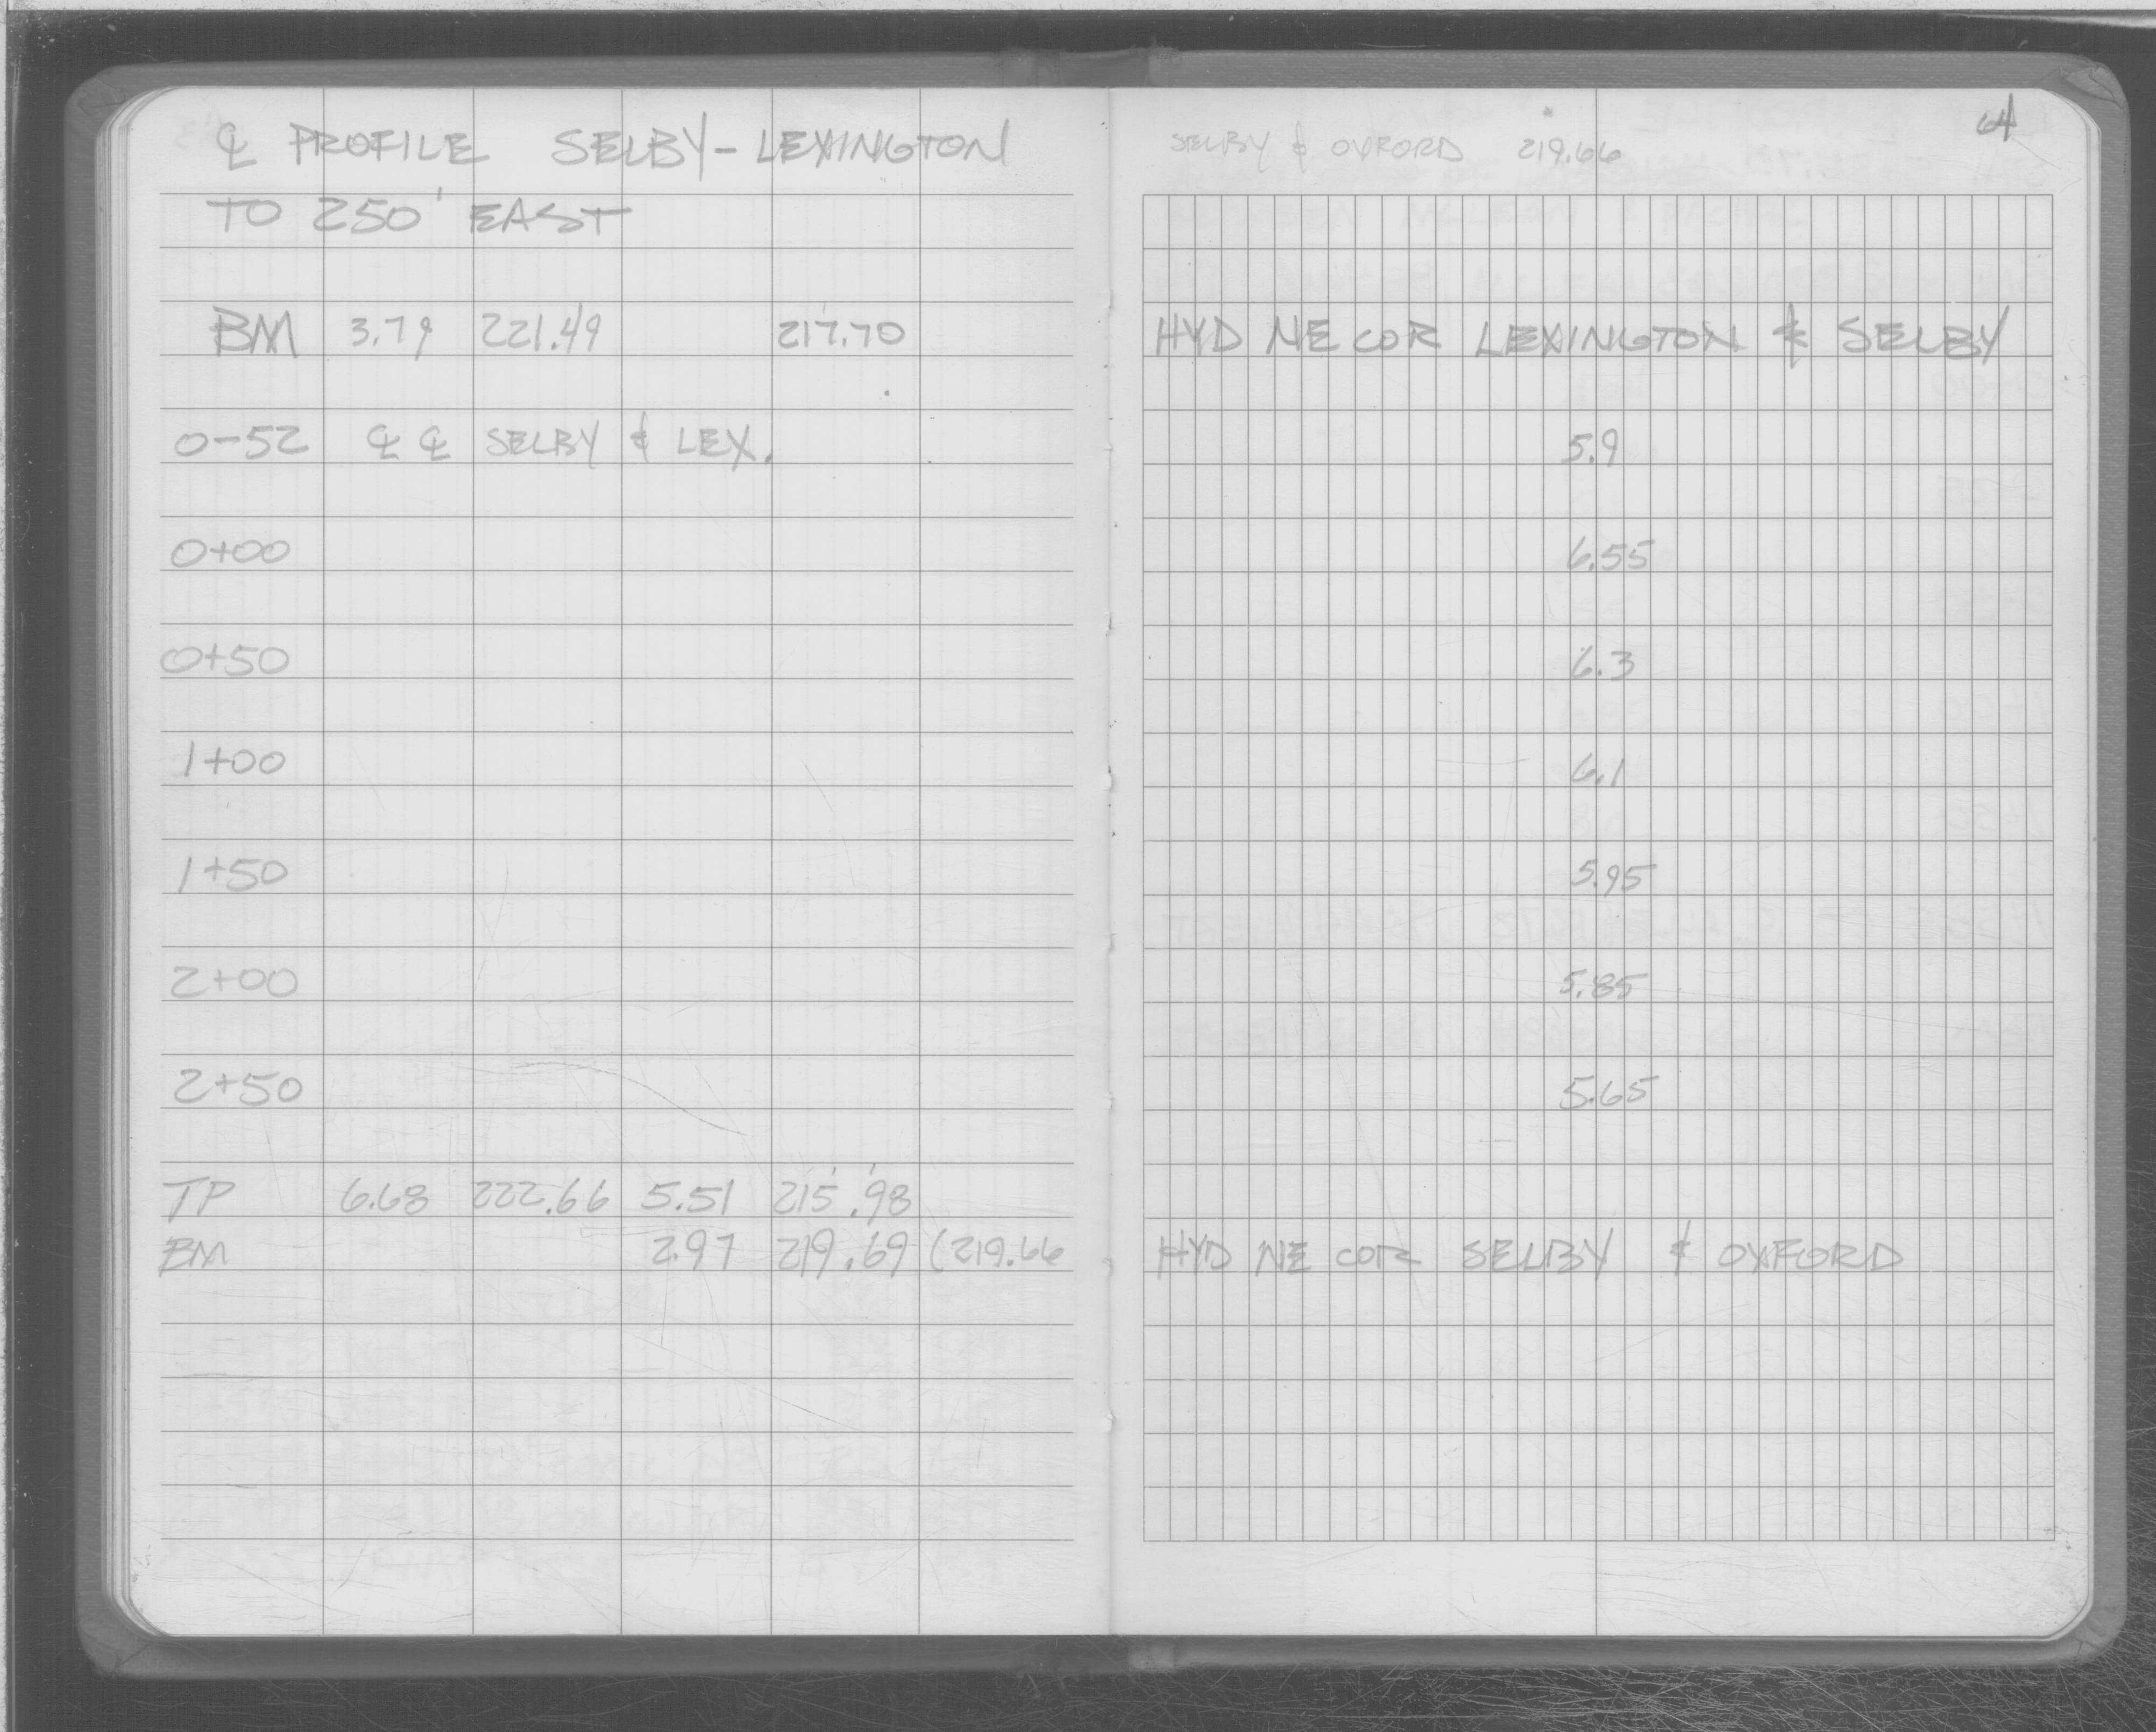 ℄ PROFILE SELBY-LEXINGTON
TO 250' EAST
BM 3.79 221.49 217.70
0-52 ℄ ℄ SELBY & LEX.
0+00
0+50
1+00
1+50
2+00
2+50
TP 6.68 222.66 5.51 215.98
BM 2.97 219.69 (219.66
64
SELBY & OXFORD 219.66
HYD NE COR LEXINGTON & SELBY
5.9
6.55
6.3
6.1
5.95
5.85
5.65
HYD NE COR SELBY & OXFORD